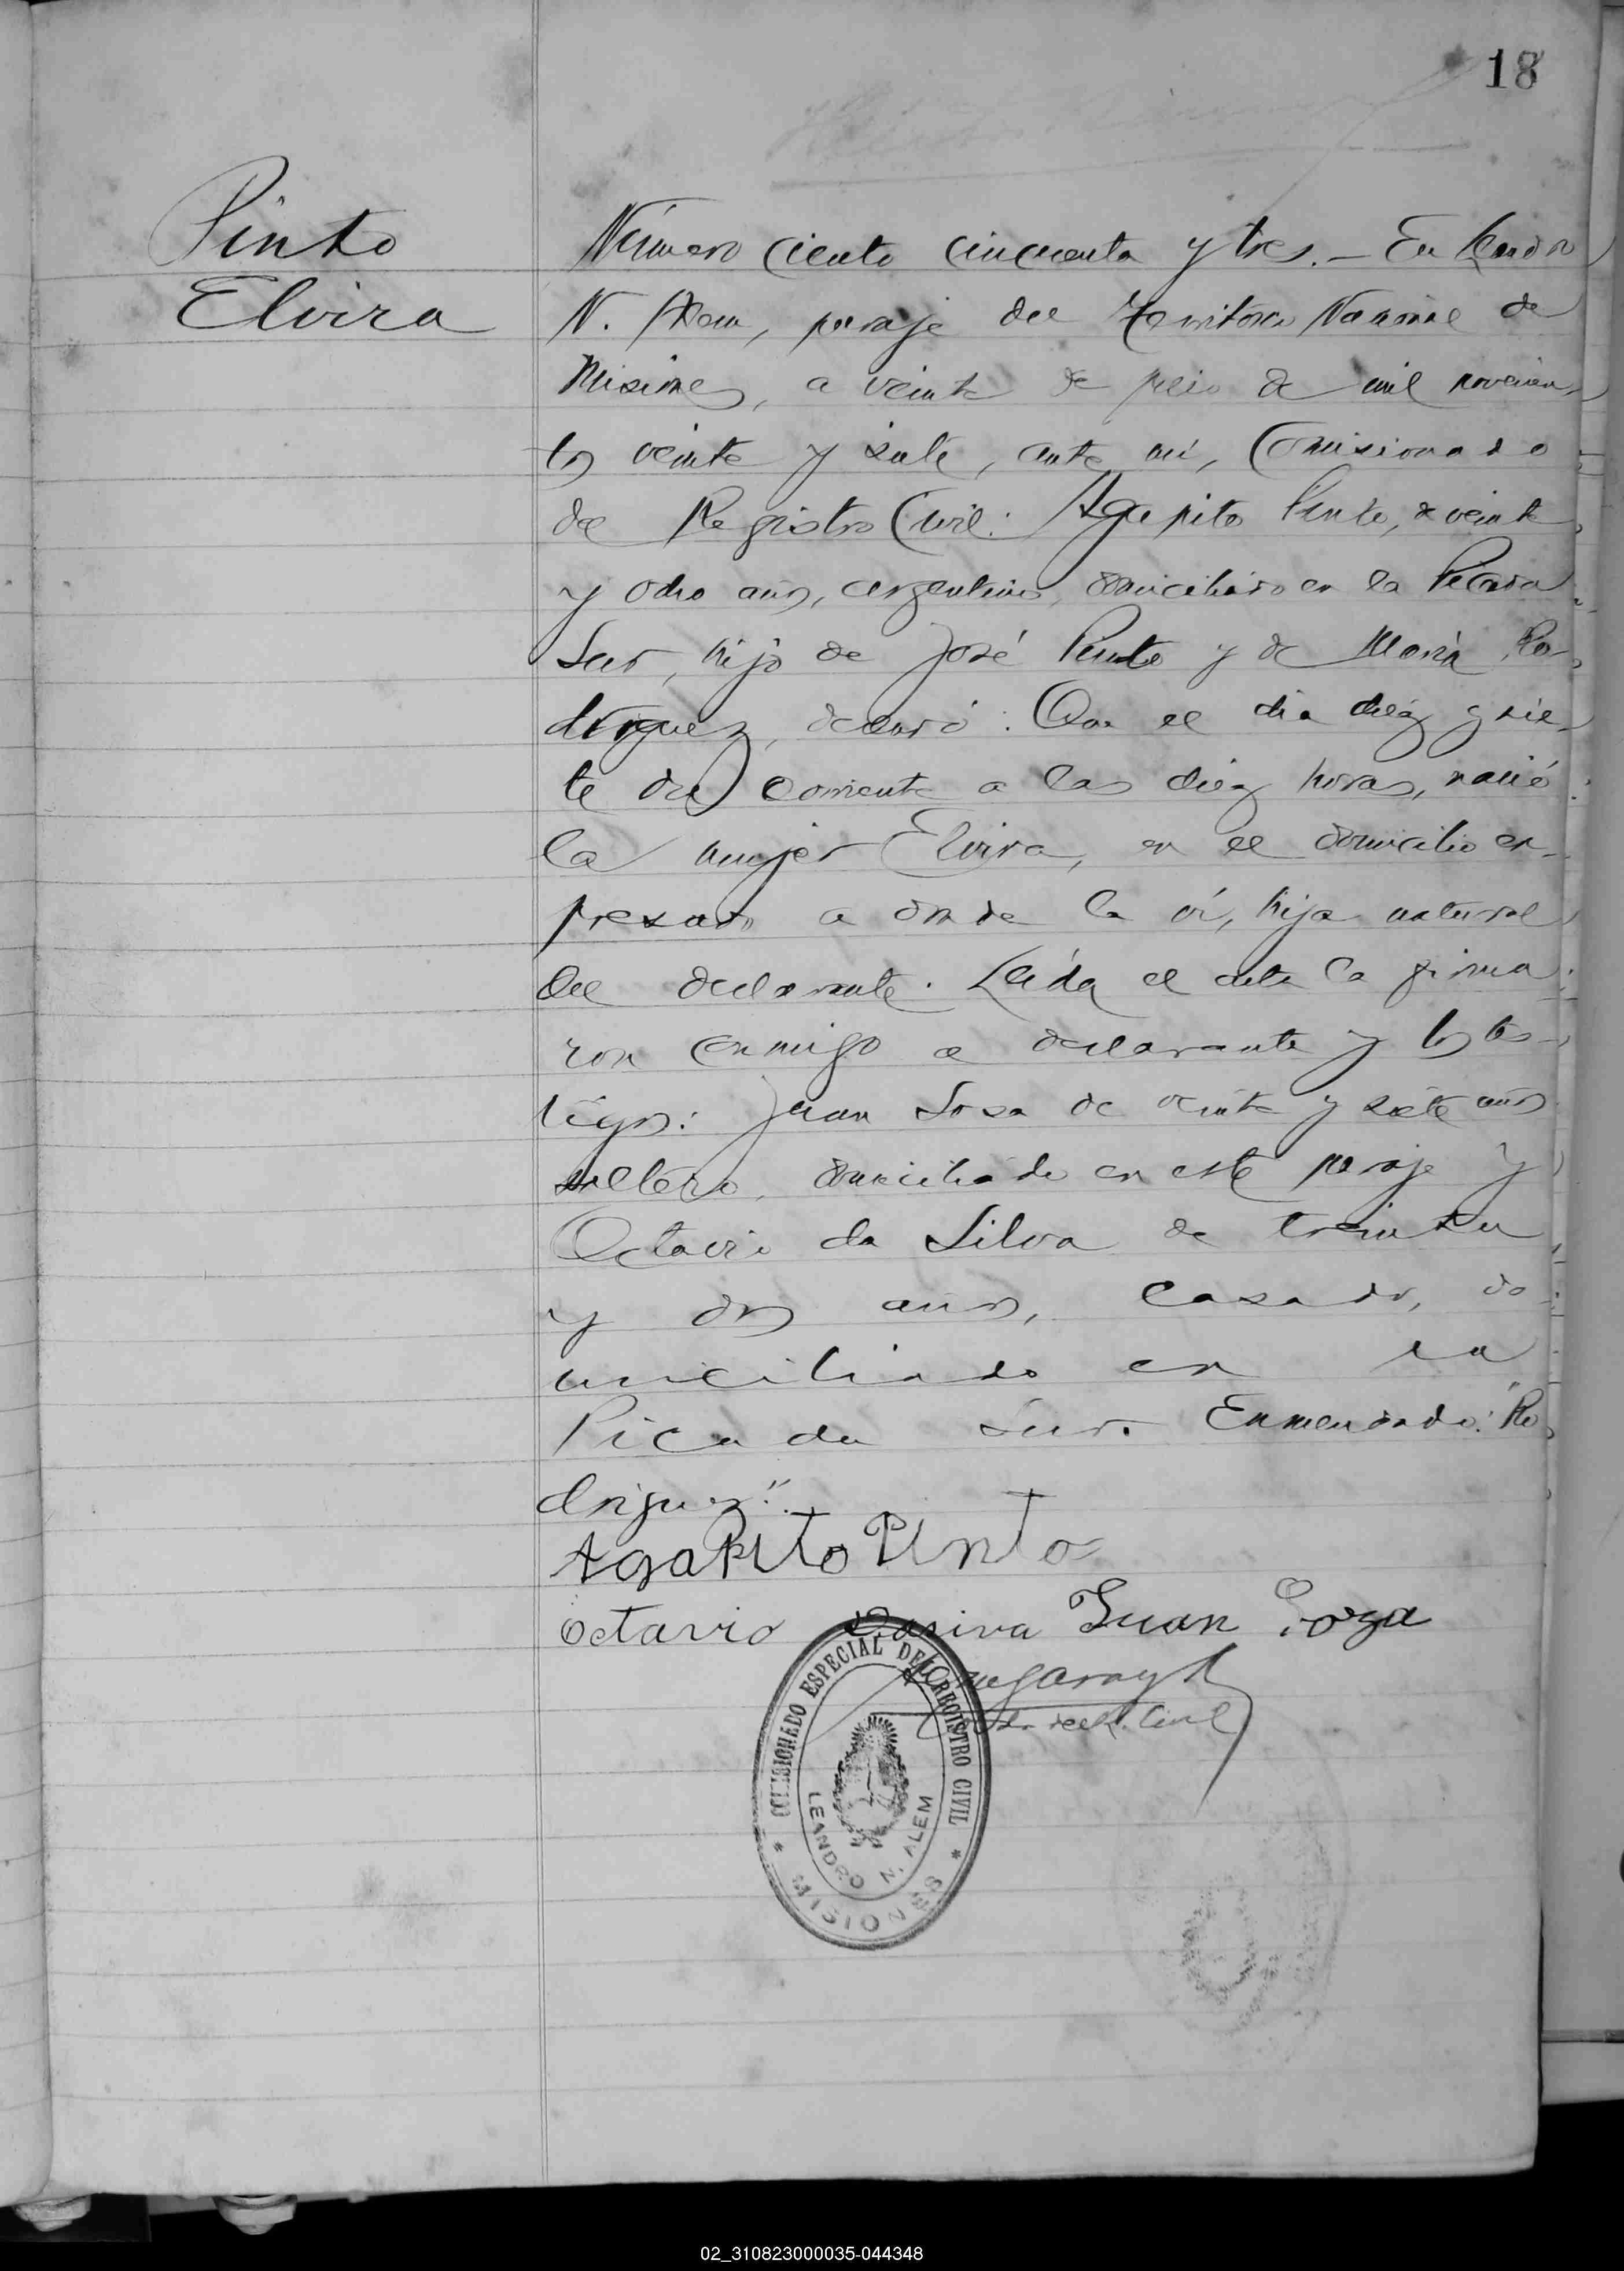 18
Pinto
Elvira
Número ciento cincuenta y tres. - En Leandro
N. Alem, paraje del Territorio Nacional de
Misiones, a veinte de julio de mil novecien
tos veinte y siete, ante mí, Comisionado
del Registro Civil: Agapito Pinto, de veinte
y ocho años, argentino, domiciliado en la Picada
Sur, hijo de José Pinto y de María Ro-
driguez, declaró: Que el dia diez y sie-
te del corriente a las diez horas, nació
la mujer Elvira, en el domicilio ex-
presado a donde la ví, hija natural
del declarante. Leída el acta la firma
ron conmigo el declarante y los tes-
tigos: Juan Sosa de veinte y siete años
soltero, domiciliado en este paraje y
Octavio da Silva de treinta
y dos años, casado, do
miciliado en la
Picada Sur. Enmendado: "Ro
driguez".
Agapito Pinto
Octavio Dasiva Juan Soza
del R. Civil
COMISIONADO ESPECIAL DEL REGISTRO CIVIL
LEANDRO N. ALEM
* MISIONES *
02_310823000035-044348